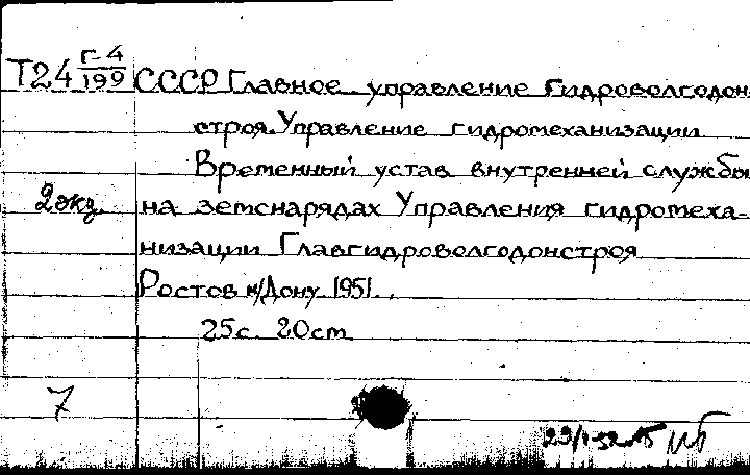 Т24 Г-4/199 СССР Главное управление Гидроволгодон-
строя. Управление гидромеханизации
Временный устав внутренней службы
2 экз. на земснарядах Управления гидромеха-
низации Главгидроволгодонстроя
Ростов н/Дону 1951.
25с. 20cm
7